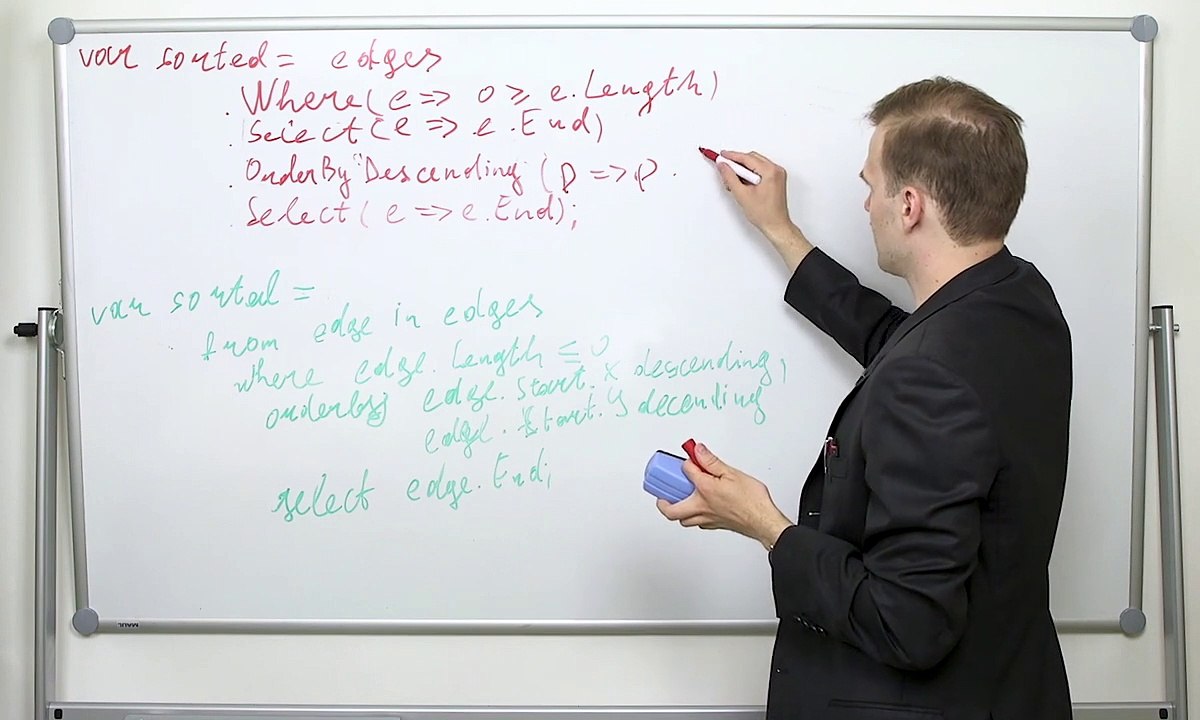 var sorted = edges
.Where(e => 0 ≥ e.Length)
.Select(e => e.End)
.OrderBy"Descending (p => p.
.Select(e => e.End);
var sorted =
from edge in edges
where edge.Length ≤ 0
orderby edge.Start.X descending,
edge.Start.Y decending
select edge.End;
MAUL